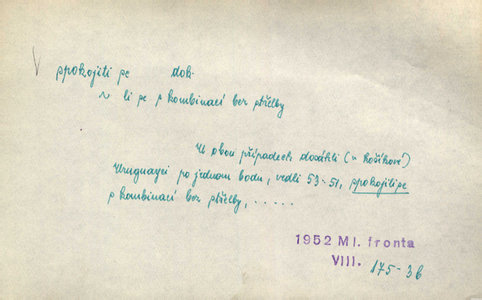 V spokojiti se dok.
~ li se s kombinací bez střelby
V obou případech dosáhli (v košíkové)
Uruguayci po jednom bodu, vedli 53-51, spokojili se
s kombinací bez střelby, . . . . .
1952 Ml. fronta
VIII. 175-3b